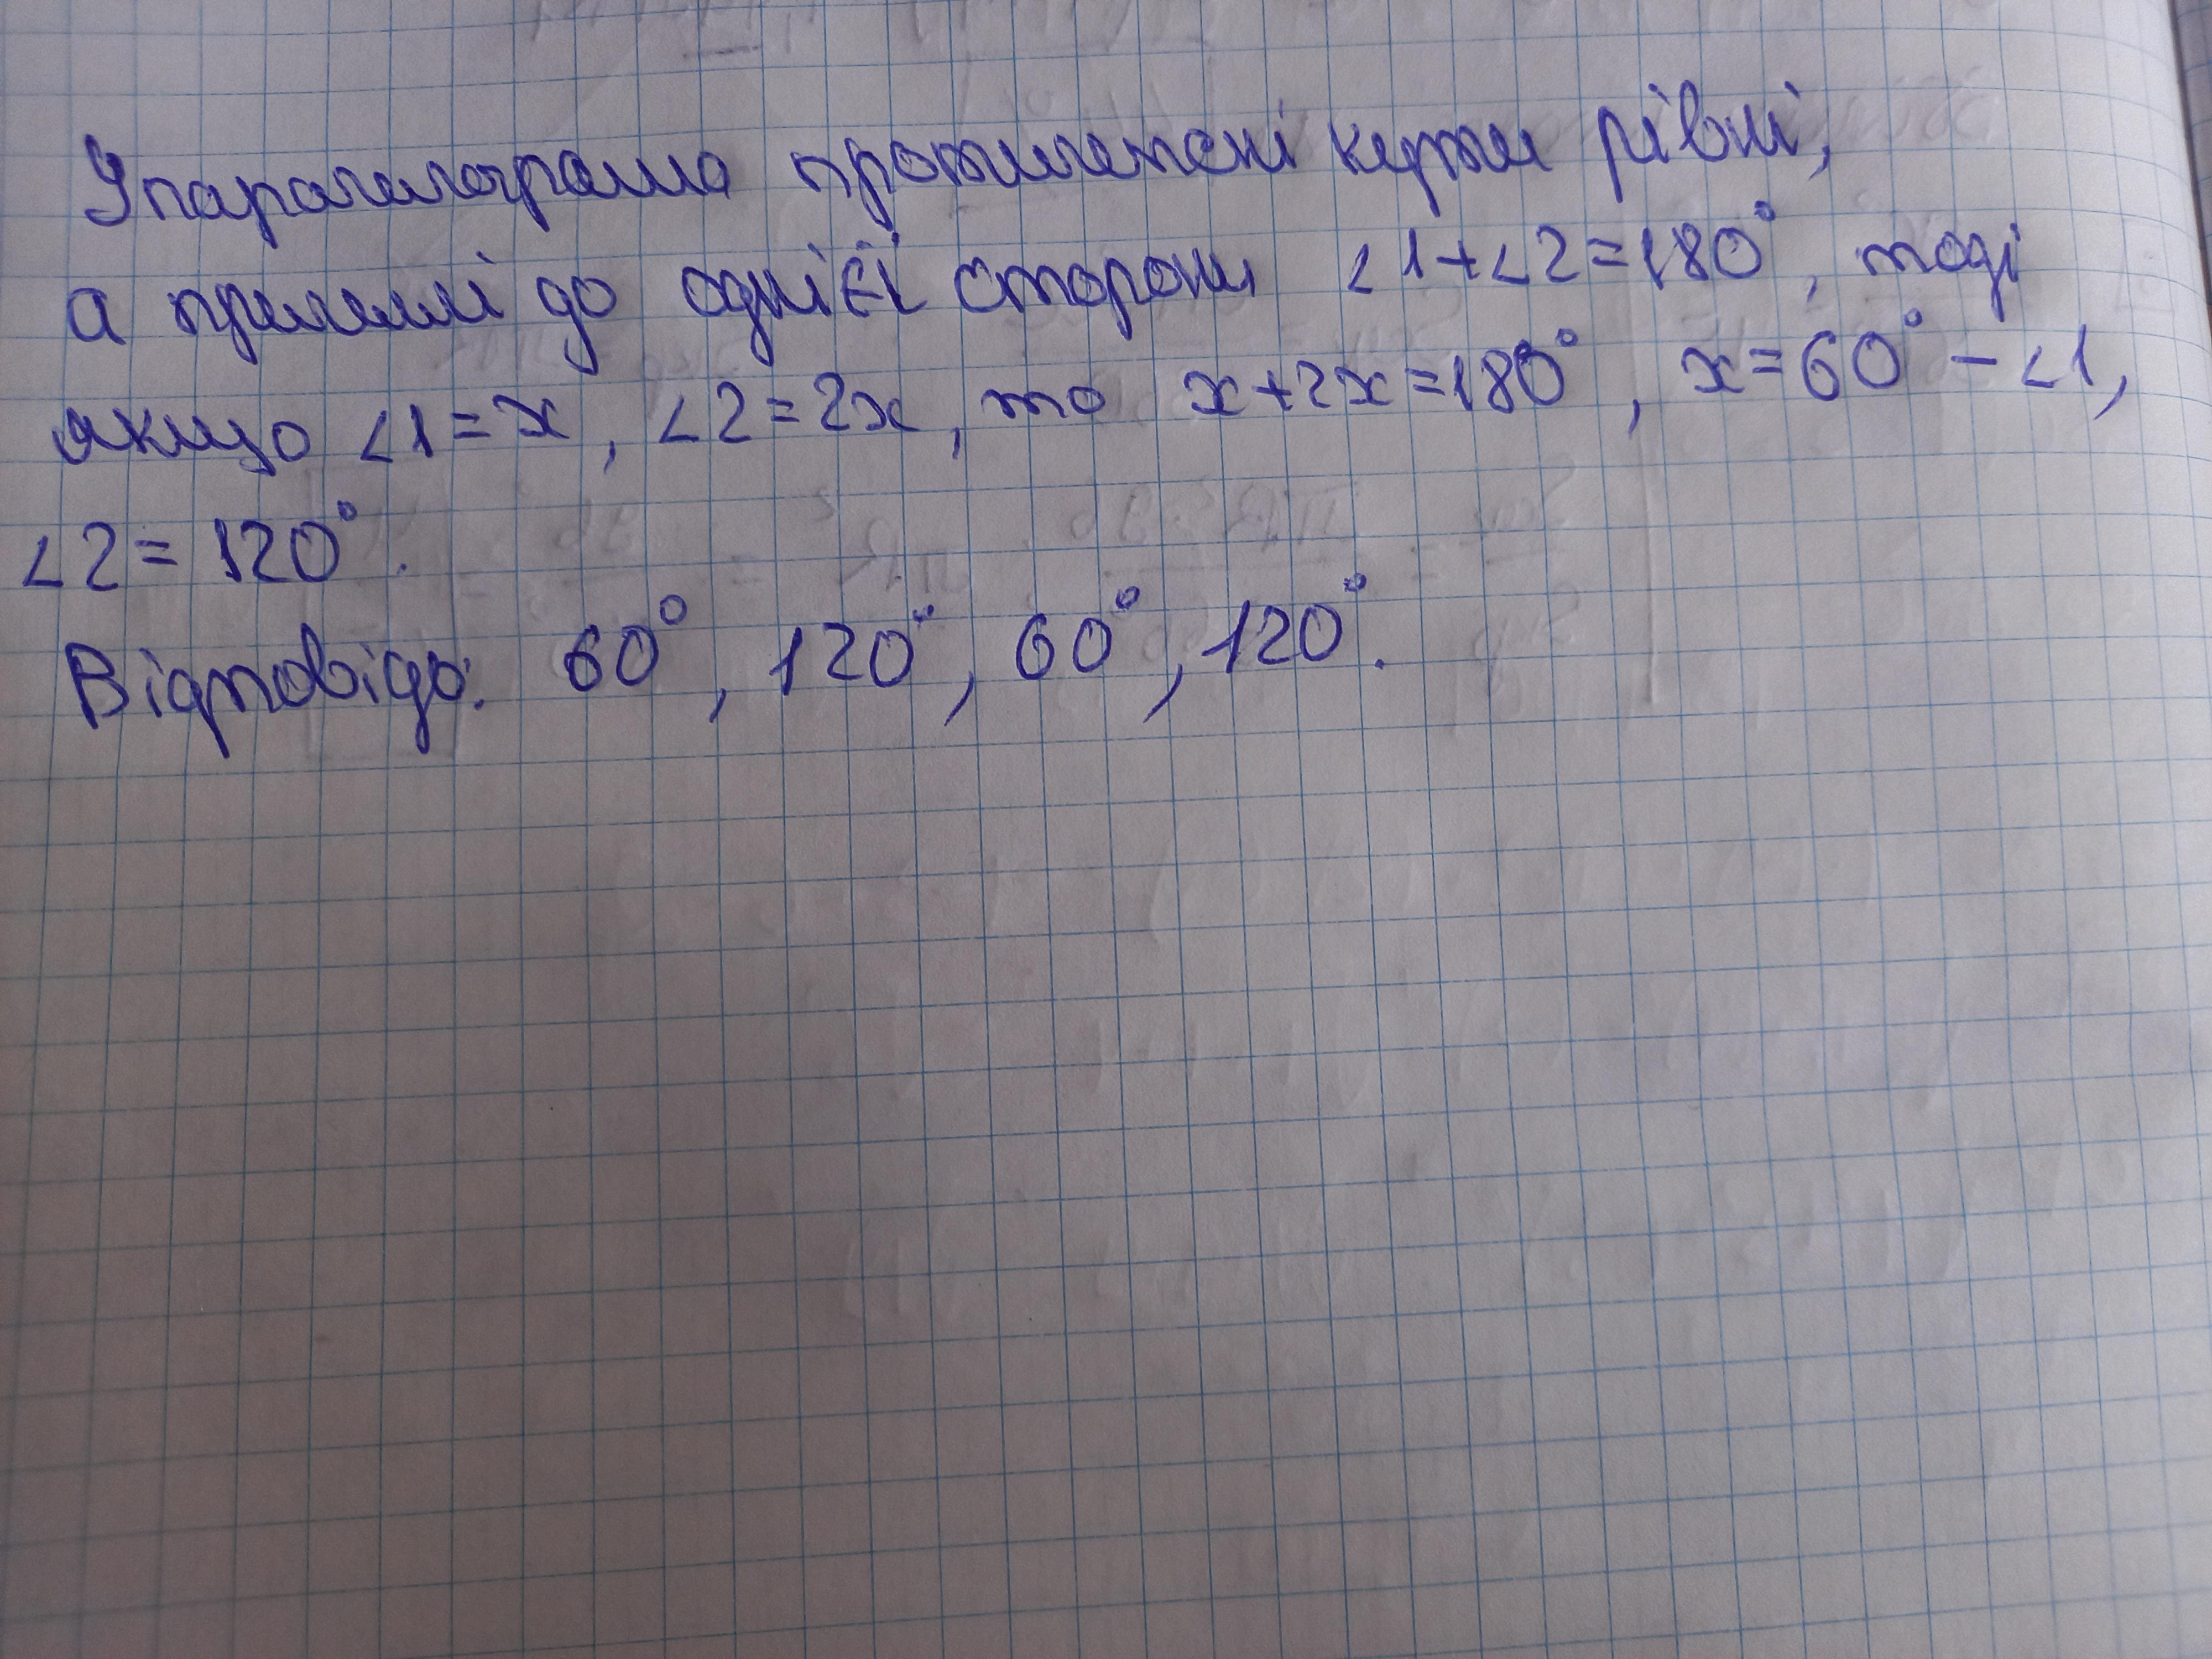 У паралелограма протилежні кути рівні,
а прилеглі до однієї сторони ∠1+∠2=180°, тоді
якщо ∠1=x, ∠2=2x, то x+2x=180°, x=60° – ∠1,
∠2=120°.
Відповідь: 60°, 120°, 60°, 120°.